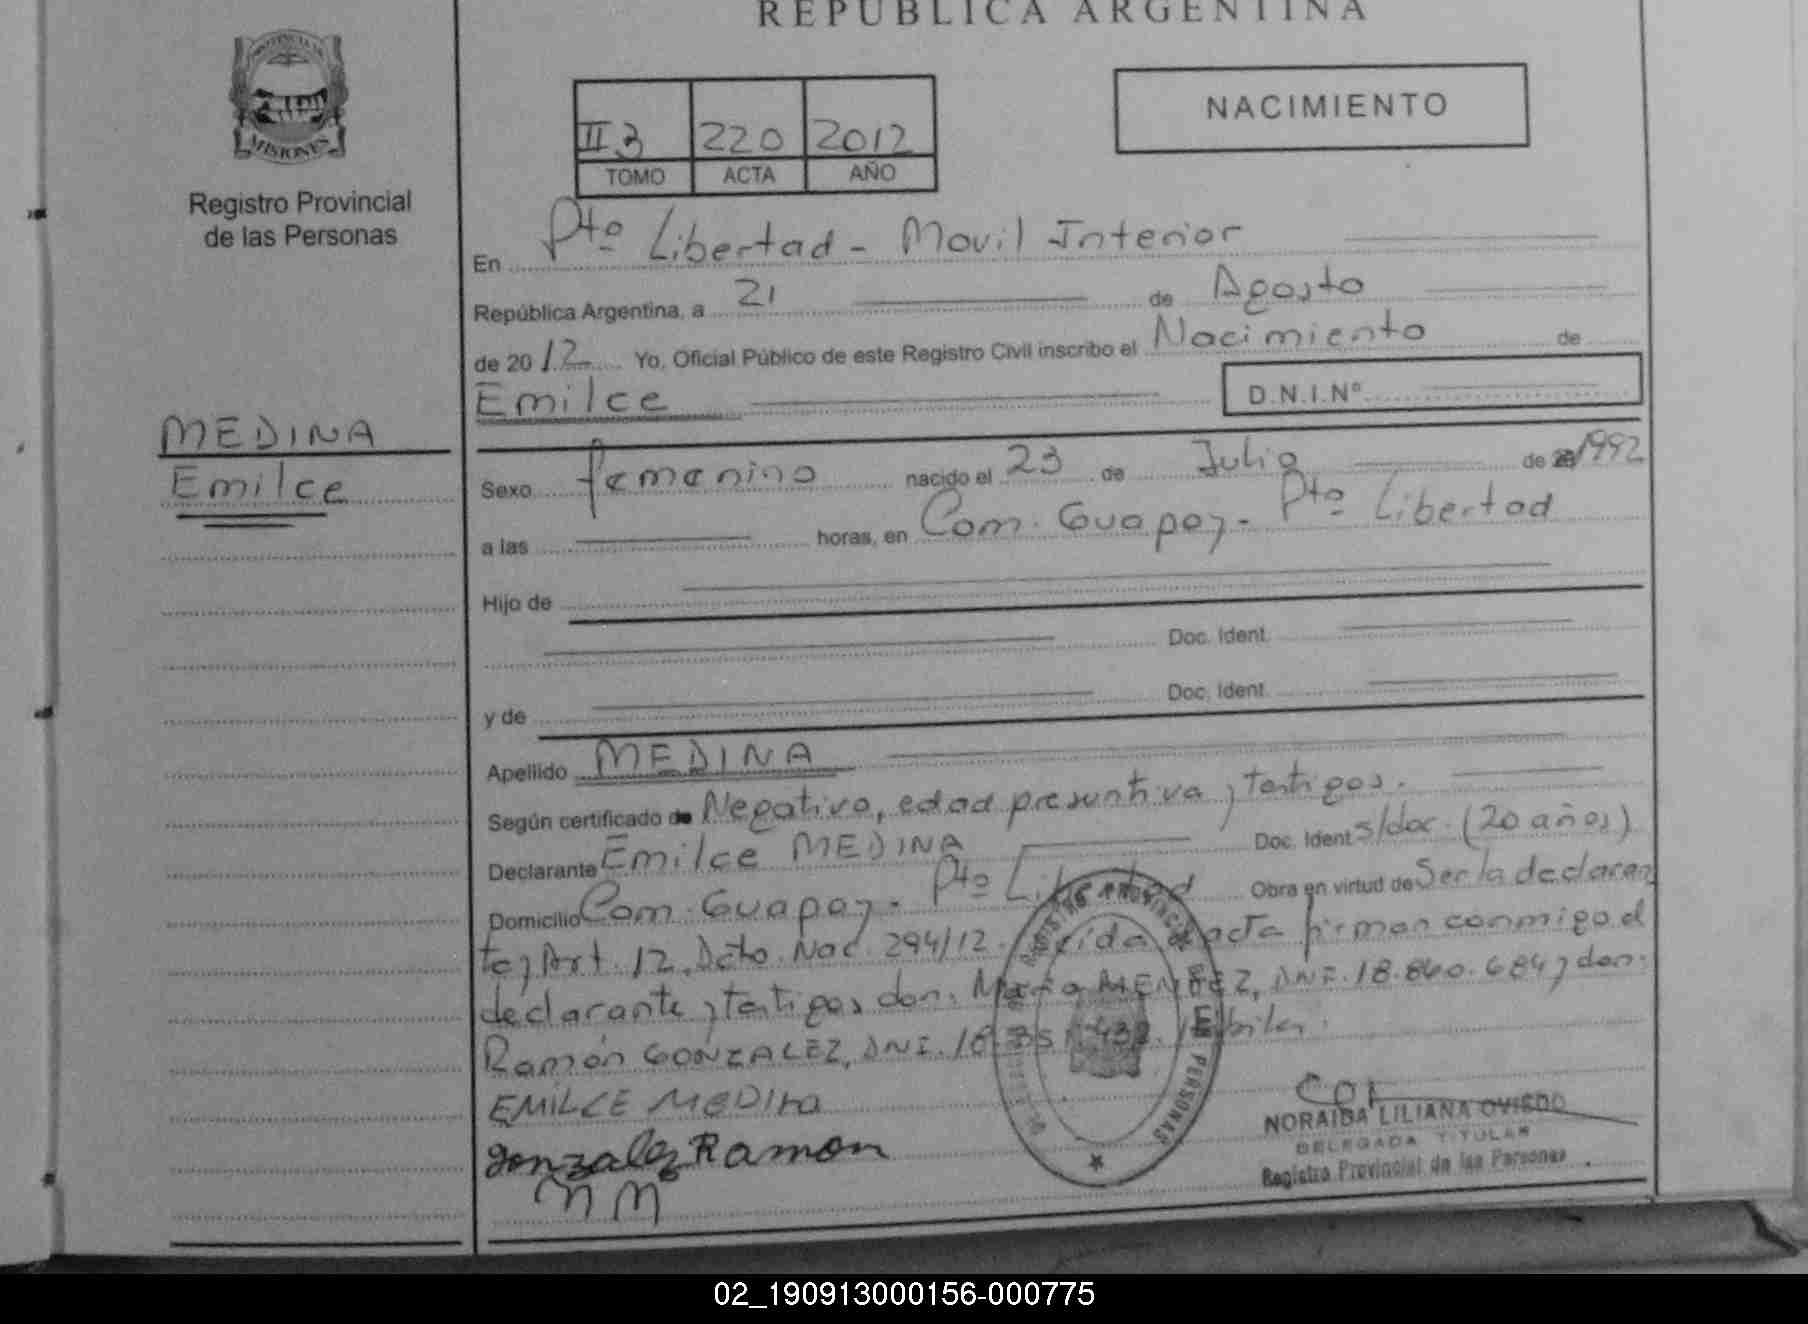 REPUBLICA ARGENTINA
PROVINCIA DE
MISIONES
Registro Provincial
de las Personas
II 3 220 2012
TOMO ACTA AÑO
NACIMIENTO
En Pto Libertad - Movil Interior
República Argentina, a 21 de Agosto
de 2012 Yo, Oficial Público de este Registro Civil inscribo el Nacimiento de
Emilce D.N.I.Nº
MEDINA
Emilce
Sexo femenino nacido el 23 de Julio de 1992
a las horas, en Com. Guapoy - Pto Libertad
Hijo de
Doc. Ident.
y de Doc. Ident.
Apellido MEDINA
Según certificado de Negativo, edad presuntiva y testigos.
Declarante Emilce MEDINA Doc. Ident s/doc. (20 años)
Domicilio Com. Guapoy - Pto Libertad Obra en virtud de Ser la declaran
te y Art. 12. Dcto. Nac. 294/12. acta firman conmigo el
declarante y testigos don: MENDEZ, DNI. 18.860.684 y don:
Ramón GONZALEZ, DNI. 18.351.439. Hábiles.
EMILCE MEDINA
Gonzalez Ramon
M M
REGISTRO PROVINCIAL DE LAS PERSONAS
NORAIBA LILIANA OVIEDO
DELEGADA TITULAR
Registro Provincial de las Personas
02_190913000156-000775